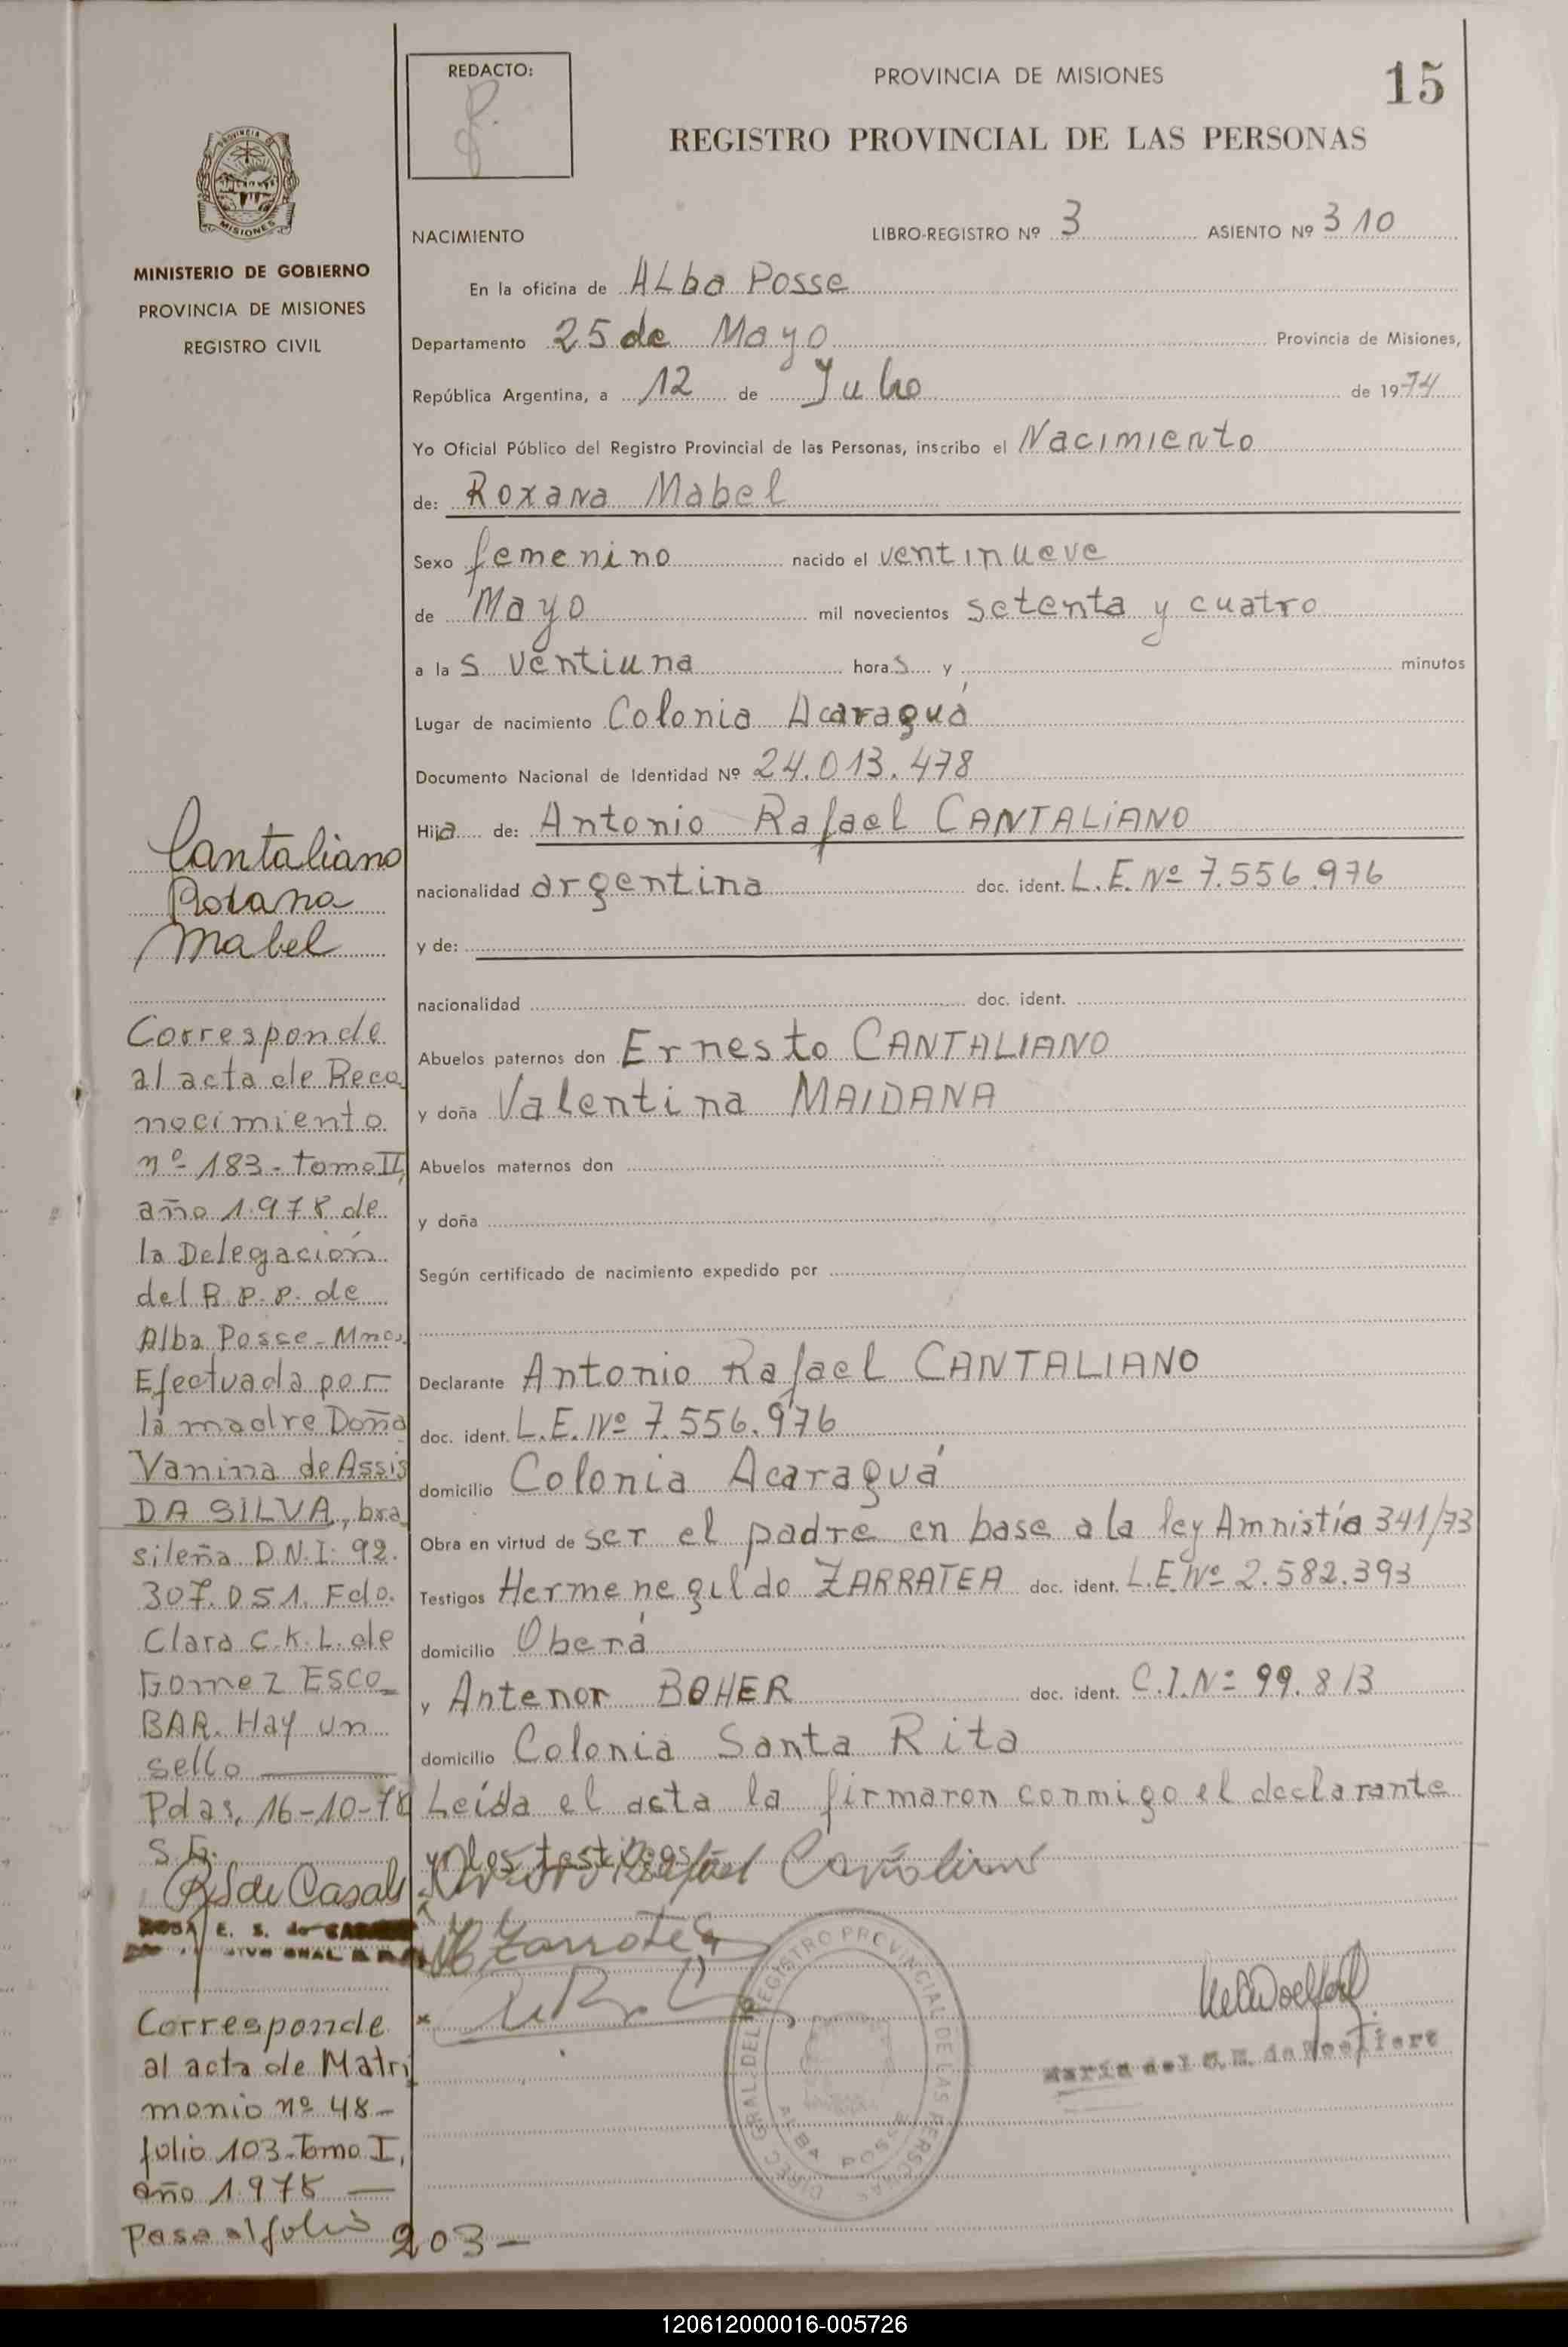 REDACTO:
PROVINCIA DE MISIONES
15
REGISTRO PROVINCIAL DE LAS PERSONAS
PROVINCIA DE
MISIONES
MINISTERIO DE GOBIERNO
PROVINCIA DE MISIONES
REGISTRO CIVIL
NACIMIENTO LIBRO-REGISTRO Nº 3 ASIENTO Nº 310
En la oficina de ALba Posse
Departamento 25 de Mayo Provincia de Misiones,
República Argentina, a 12 de Julio de 1974
Yo Oficial Público del Registro Provincial de las Personas, inscribo el Nacimiento
de: Roxana Mabel
Sexo femenino nacido el ventinueve
de Mayo mil novecientos setenta y cuatro
a las ventiuna horas y minutos
Lugar de nacimiento Colonia Acaraguá
Documento Nacional de Identidad Nº 24.013.478
Hija de: Antonio Rafael CANTALiANO
nacionalidad argentina doc. ident. L.E. Nº 7.556.976
y de:
nacionalidad doc. ident.
Abuelos paternos don Ernesto CANTALIANO
y doña Valentina MAIDANA
Abuelos maternos don
y doña
Según certificado de nacimiento expedido por
Declarante Antonio Rafael CANTALIANO
doc. ident. L.E. Nº 7.556.976
domicilio Colonia Acaraguá
Obra en virtud de ser el padre en base a la ley Amnistía 341/73
Testigos Hermenegildo ZARRATEA doc. ident. L.E. Nº 2.582.393
domicilio Oberá
y Antenor BOHER doc. ident. C.I. Nº 99.813
domicilio Colonia Santa Rita
Leída el acta la firmaron conmigo el declarante
y los testigos
Maria del C. M. de Woelfert
DIREC. GRAL. DEL REGISTRO PROVINCIAL DE LAS PERSONAS
ALBA POSSE
Cantaliano
Roxana
Mabel
Corresponde
al acta de Reco
nocimiento
nº 183 - tomo II,
año 1.978 de
la Delegación
del R.P.P. de
Alba Posse - Mnes.
Efectuada por
la madre Doña
Vanirra de Assis
DA SILVA, bra
sileña D.N.I. 92.
307.051. Fdo.
Clara C.K.L. de
Gomez ESCO_
BAR. Hay un
sello
Pdas, 16-10-78
Corresponde
al acta de Matri
monio nº 48-
folio 103-Tomo I,
año 1.978
Pasa al folio 203-
120612000016-005726